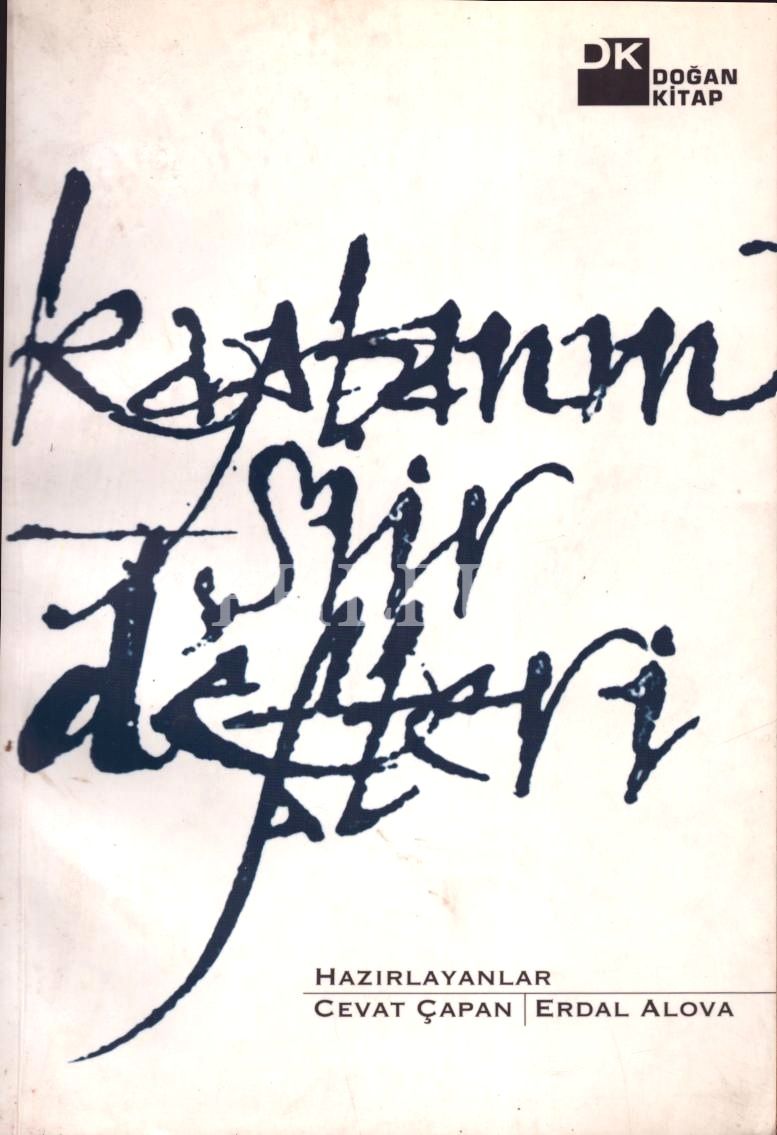 DK DOĞAN
KİTAP
kaptanın
şiir
defteri
HAZIRLAYANLAR
CEVAT ÇAPAN | ERDAL ALOVA